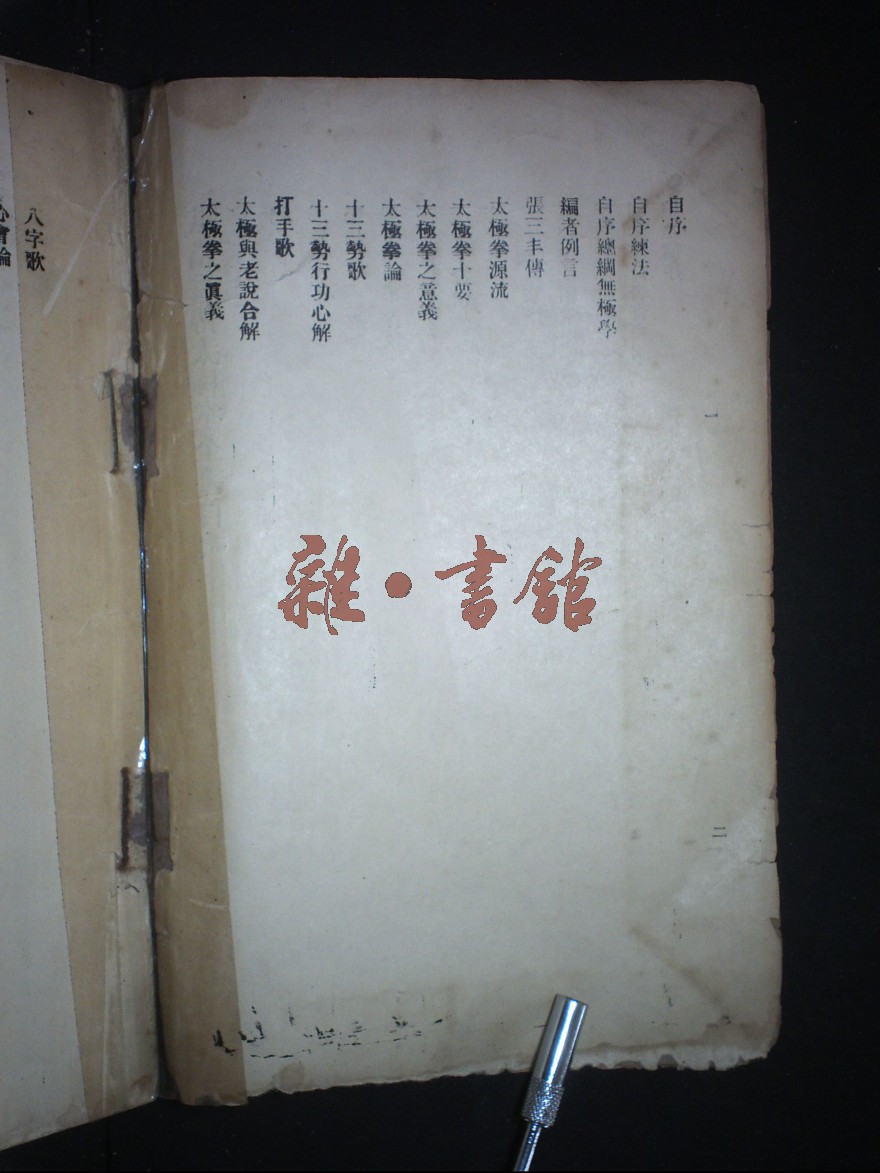 自序
自序練法
自序總綱無極學
編者例言
張三丰傳
太極拳源流
太極拳十要
太極拳之意義
太極拳論
十三勢歌
十三勢行功心解
打手歌
太極與老說合解
太極拳之眞義
一
二
八字歌
心會論
雜·書館